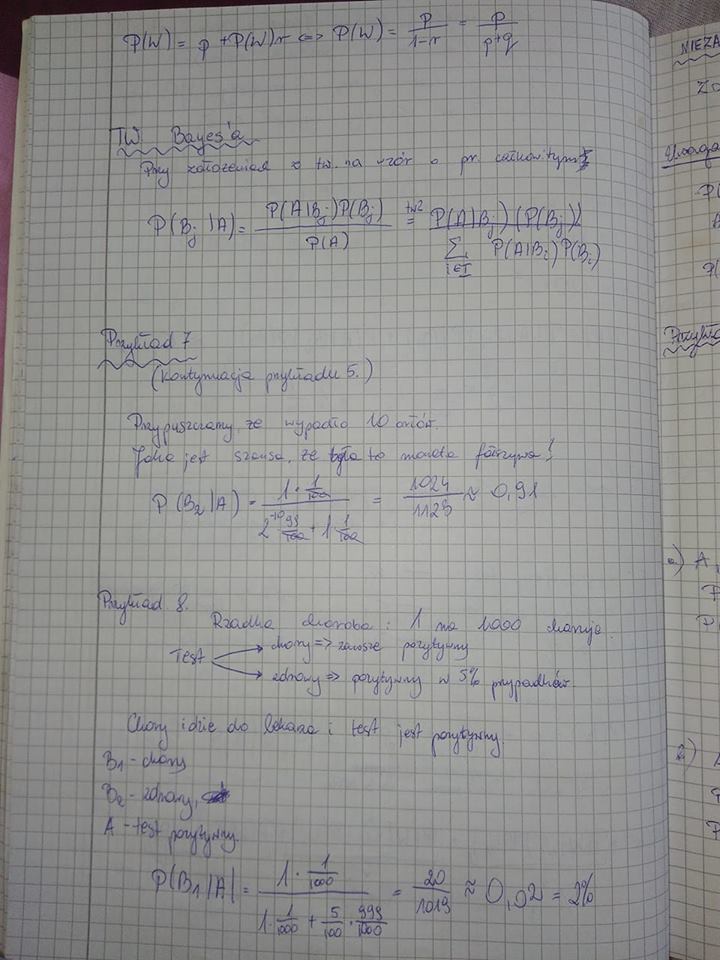 P(W) = p + P(W)r <=> P(W) = p/(1-r) = p/(p+q)
TW Bayes'a
Przy założeniach z tw. na wzór o pr. całkowitym
P(Bj|A) = P(A|Bj)P(Bj) / P(A) =(tw2) P(A|Bj)(P(Bj)) / ∑_{i∈I} P(A|Bi)P(Bi)
Przykład 7
(kontynuacja przykładu 5.)
Przypuszczamy, że wypadło 10 orłów.
Jaka jest szansa, że była to moneta fałszywa?
P(B2|A) = (1 · 1/100) / (2^-10 · 99/100 + 1 · 1/100) = 1024/1123 ≈ 0,91
Przykład 8.
Rzadka choroba: 1 na 1000 choruje.
Test → chory => zawsze pozytywny
→ zdrowy => pozytywny w 5% przypadków.
Chory idzie do lekarza i test jest pozytywny.
B1 - chory
B2 - zdrowy,
A - test pozytywny.
P(B1|A| = (1 · 1/1000) / (1 · 1/1000 + 5/100 · 999/1000) = 20/1019 ≈ 0,02 = 2%
NIEZA
Zd
Uwaga
P(
P(
Przykła
a) A,
P
P(
2)
P